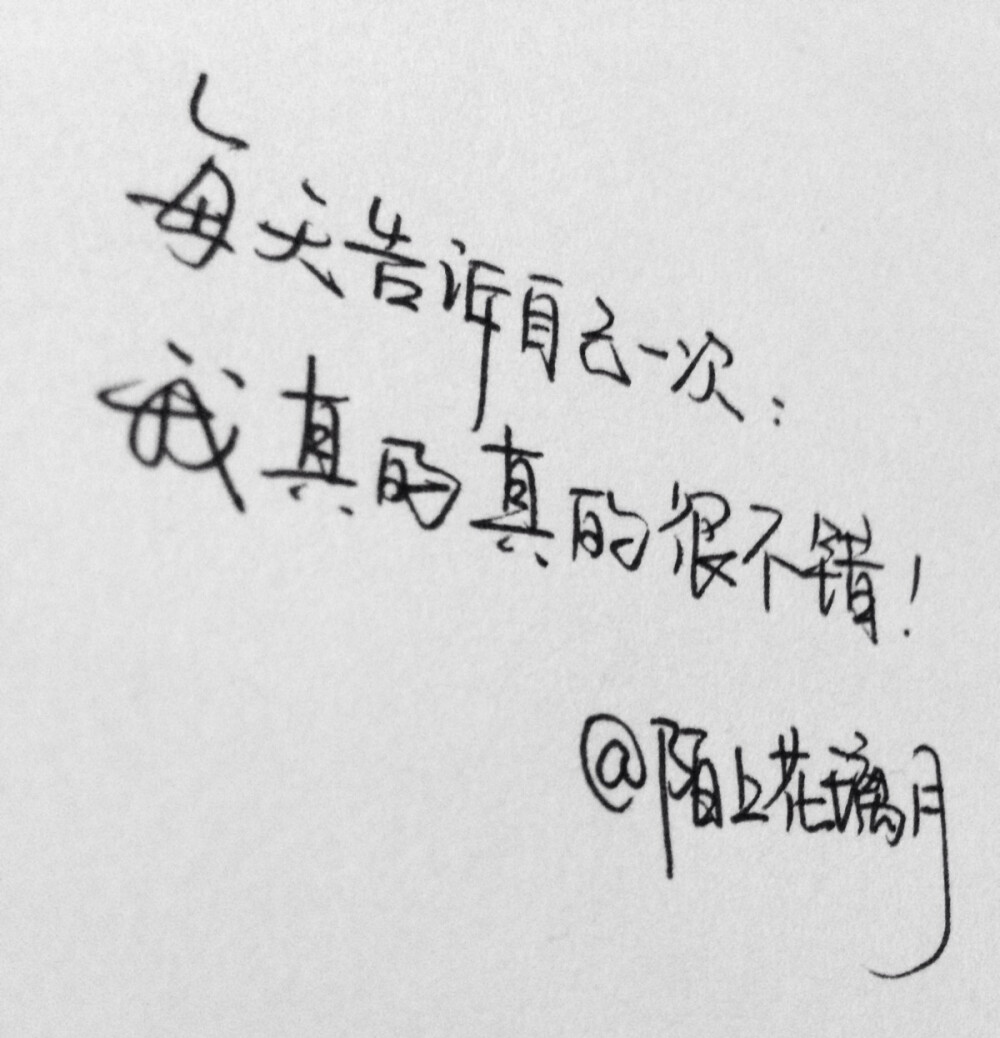 每天告诉自己一次：
我真的真的很不错！
@陌上花璃月